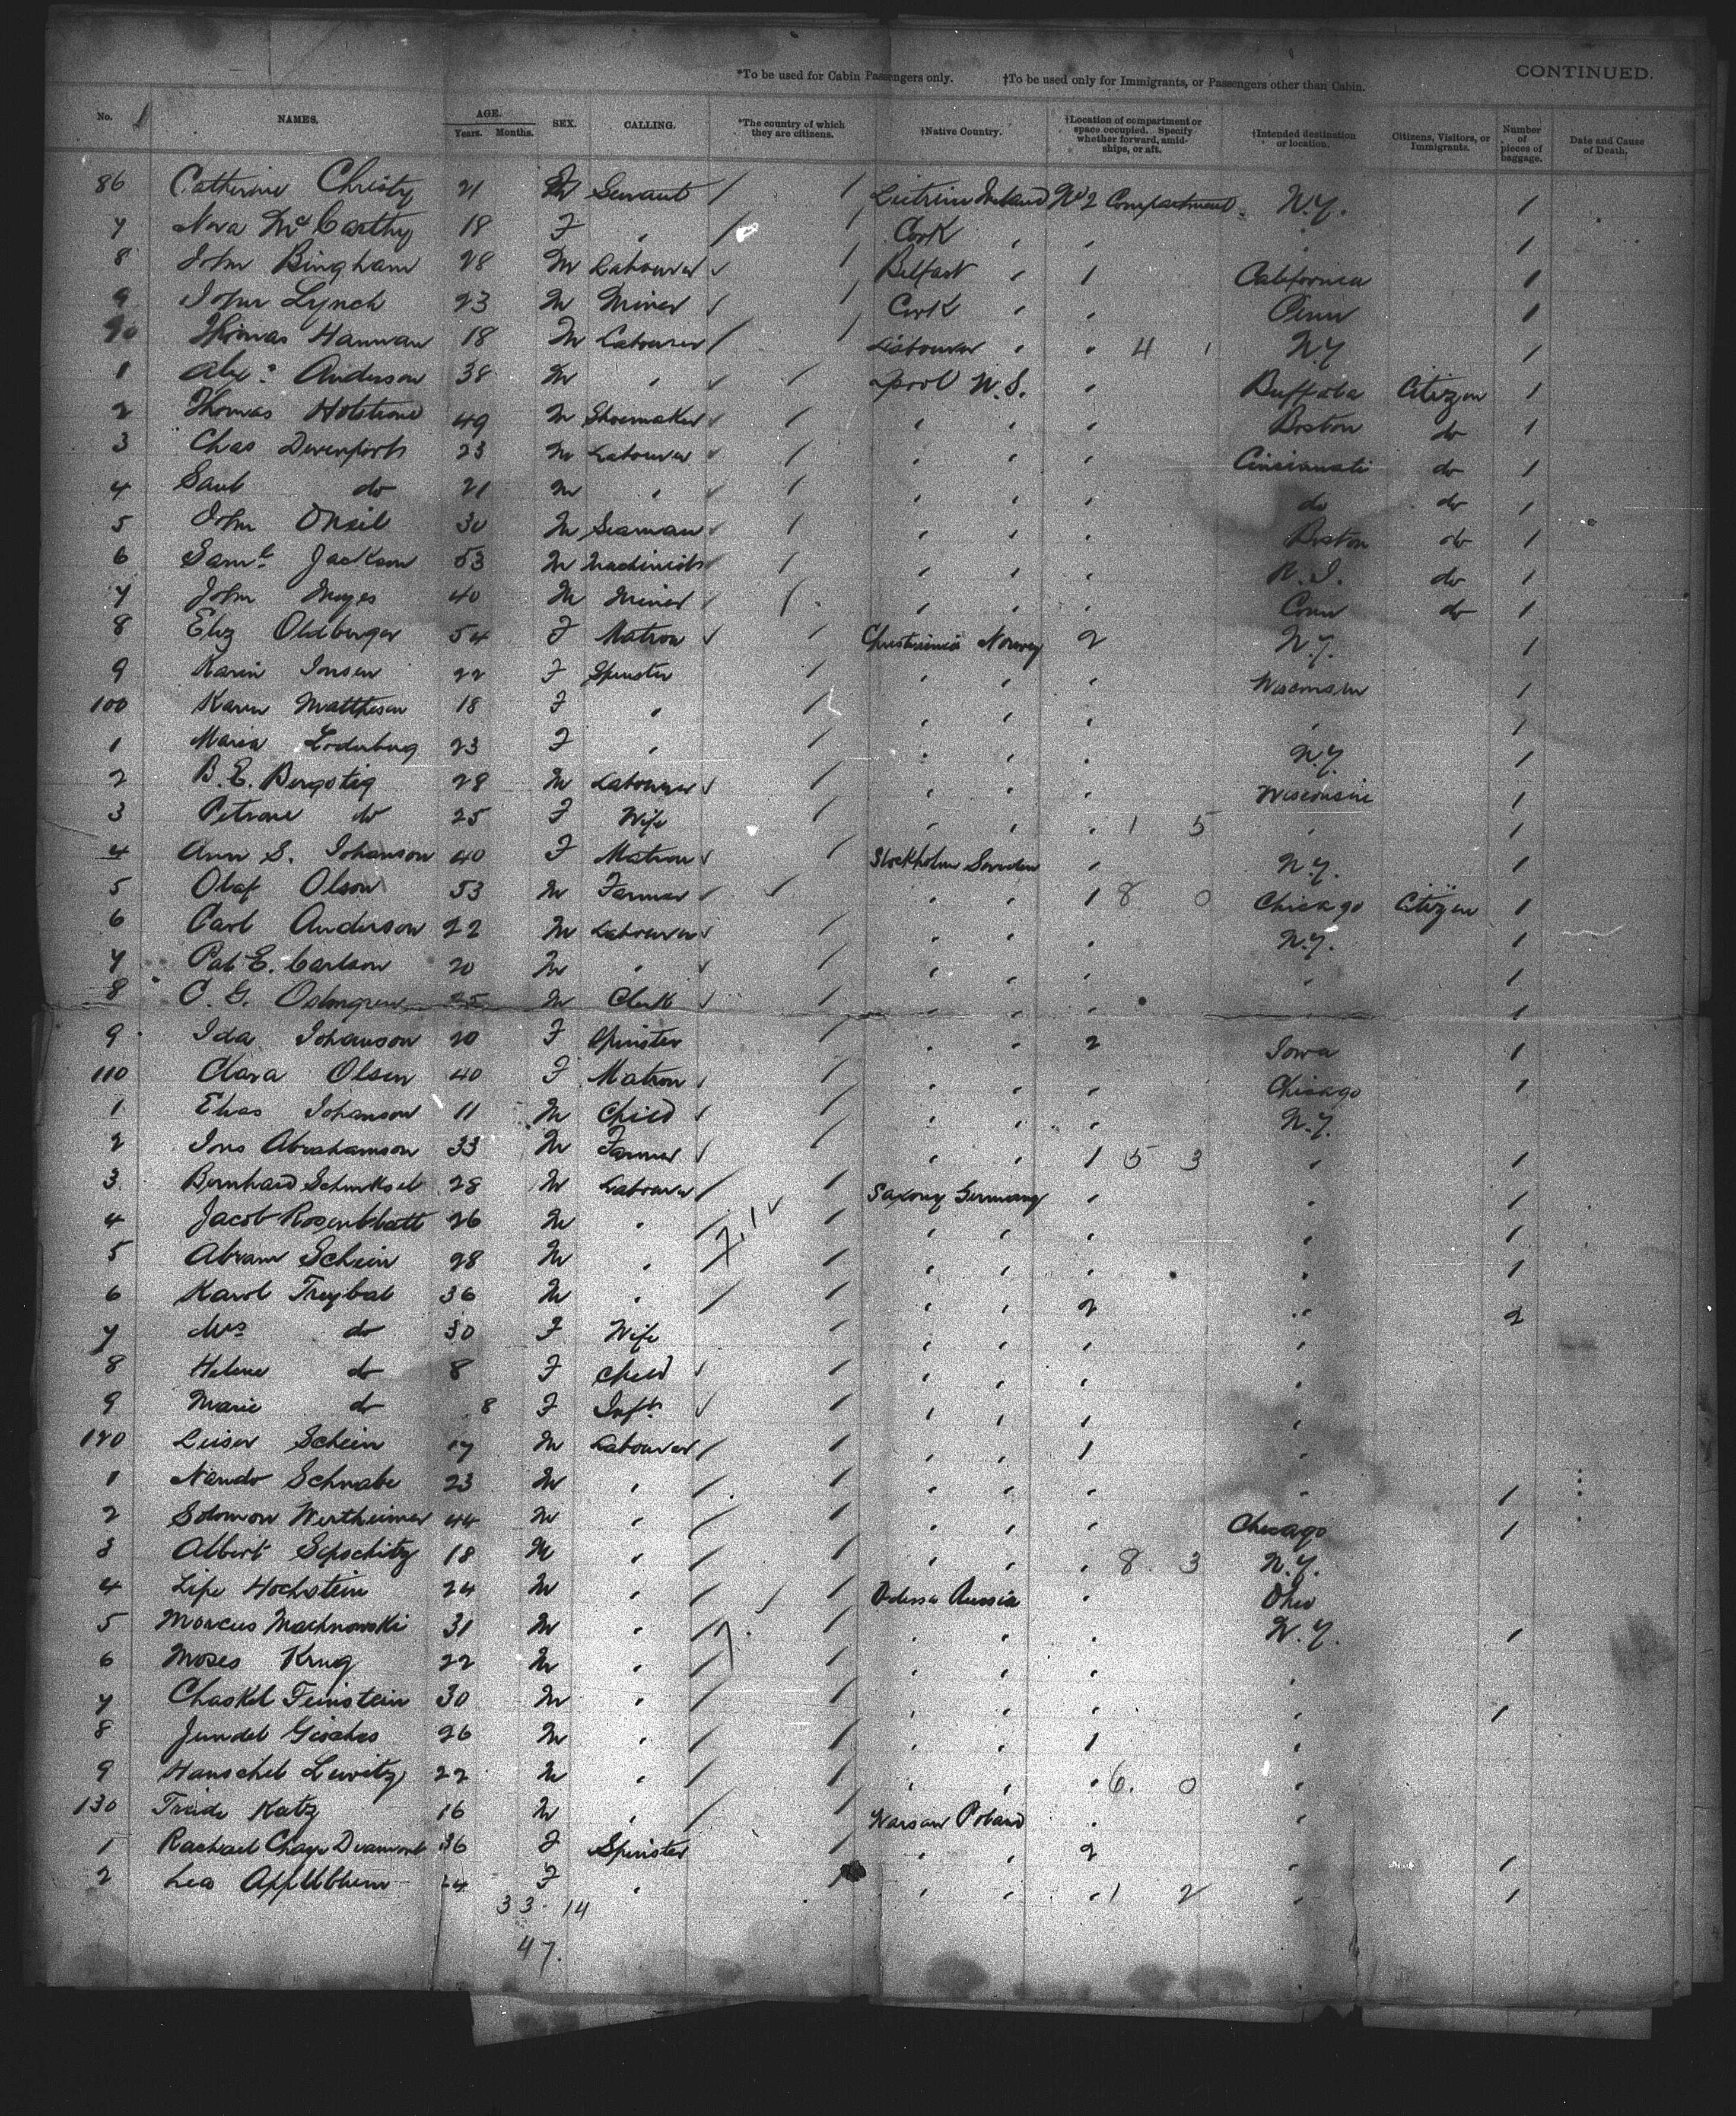 CONTINUED.
*To be used for Cabin Passengers only. †To be used only for Immigrants, or Passengers other than Cabin.
No. NAMES. AGE. Years. Months. SEX. CALLING. *The country of which they are citizens. †Native Country. †Location of compartment or space occupied. Specify whether forward, amidships, or aft. †Intended destination or location. Citizens, Visitors, or Immigrants. Number of pieces of baggage. Date and Cause of Death.
86 Catherine Christy 21 Servant Lietrim Ireland No 2 Compartment N.Y. 1
7 Nora McCarthy 18 F " Cork " " " 1
8 John Bingham 28 M Labourer Belfast " 1 California 1
9 John Lynch 23 M Miner Cork " " Penn 1
90 Thomas Hannan 18 M Labourer Labourer " " 4 1 N.Y. 1
1 Alex. Anderson 38 M " L'pool N.S. " Buffalo Citizen 1
2 Thomas 49 M Shoemaker " " " Boston do 1
3 Chas Devenport 23 M Labourer " " " Cincinnati do 1
4 Saul do 21 M " " " " do do 1
5 John ONeil 30 M Seaman " " " Boston do 1
6 Saml. Jackson 53 M Machinist " " " R.I. do 1
7 John Mayes 40 M Miner " " " Conn do 1
8 Eliz Oldberger 54 F Matron Christiania Norway 2 N.Y. 1
9 Karin Jonsen 22 F Spinster " " " Wisconsin 1
100 Karen Matthesen 18 F " " " " " 1
1 Maria 23 F " " " " N.Y. 1
2 B. E. Bergstig 28 M Labourer " " " Wisconsin 1
3 Petrane do 25 F Wife " " " 1 5 " 1
4 Ann S. Johanson 40 F Matron Stockholm Sweden " N.Y. 1
5 Olaf Olson 53 M Farmer " " 1 8 0 Chicago Citizen 1
6 Carl Anderson 22 M Labourer " " " N.Y. 1
7 E. Carlson 20 M " " " " " 1
8 C. G. Oalmgren 25 M Clerk " " " " 1
9 Ida Johanson 20 F Spinster " " 2 Iowa 1
110 Clara Olsen 40 F Matron " " " Chicago 1
1 Elias Johanson 11 M Child " " " N.Y.
2 Jons Abrahamson 33 M Farmer " " 1 5 3 " 1
3 Bernhard 28 M Labourer Saxony Germany " " 1
4 Jacob Rosenblatt 26 M " " " " " 1
5 Abram Schein 28 M " " " " " 1
6 Karol Treybal 36 M " " " 2 " 2
7 Mrs do 30 F Wife " " " "
8 Helene do 8 F Child " " " "
9 Marie do 8 F Inft. " " " "
120 Leiser Schein 17 M Labourer " " 1 "
1 Nando Schnabe 23 M " " " " " 1
2 Solomon Wertheimer 44 M " " " " Chicago 1
3 Albert 18 M " " " " 8 3 N.Y.
4 Lipe Hochstein 24 M " Odessa Russia " Ohio
5 Marcus Machnowski 31 M " " " " N.Y. 1
6 Moses Krug 22 M " " " " "
7 Chaskel Feinstein 30 M " " " " " 1
8 Jundel Gisches 26 M " " " 1 "
9 Hanschel Lewitz 22 M " " " " 6 0 "
130 Katz 16 M " Warsaw Poland " "
1 Rachael Chaje 36 F Spinster " " 2 " 1
2 Lea 24 F " " " " 1 2 " 1
33. 14
47.